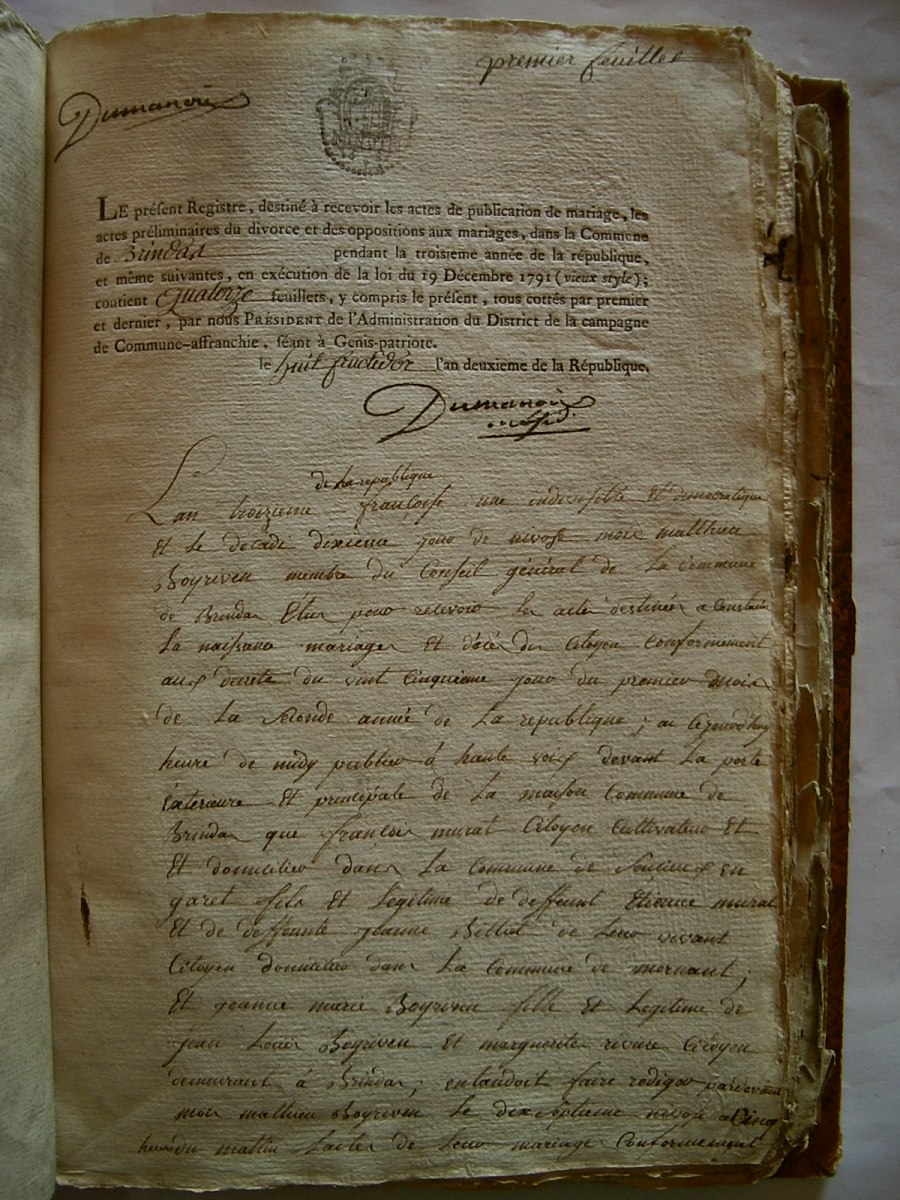 premier feuillet
Dumanoir
LE préſent Regiſtre, deſtiné à recevoir les actes de publication de mariage, les
actes préliminaires du divorce et des oppositions aux mariages, dans la Commune
de Brindas pendant la troisieme année de la république,
et même suivantes, en exécution de la loi du 19 Décembre 1791 (vieux style);
contient Quatorze feuillets, y compris le préſent, tous cottés par premier
et dernier, par nous PRÉSIDENT de l'Administration du District de la campagne
de Commune-affranchie, ſéant à Genis-patriote.
le huit fructidor l'an deuxieme de la République.
Dumanoir
de la republique
Lan troizieme françoise une indivisible et democratique
et le decade dixieme jour de nivose moi matthieu
Boyriven membre du Conseil général de la Commune
de Brindas Elu pour recevoir les actes destinées a Constater
la naissance mariages et décés du Citoyen Conformement
aux decrets du vint Cinquieme jour du premier mois
de la seconde année de la republique; ai Cejourd'huy
heure de midy publier á haute voix devant la porte
Exterieure et principale de la maison Commune de
Brindas que françois murat Citoyen Cultivateur et
et domicilier dans la Commune de Soucieux en
garet fils et legitime de deffeunt Etienne murat
et de deffeunte jeanne Billiot de leur vivant
Citoyen domicilier dans la Commune de mornant;
et jeanne marie Boyriven fille et legitime de
jean Louis Boyriven et marguerite riviere Citoyen
demeurant á Brindas; entandoit faire rediger pardevant
moi mathieu Boyriven le dix septieme nivose a Cinq
heure du mattin lacter de leur mariage Conformement